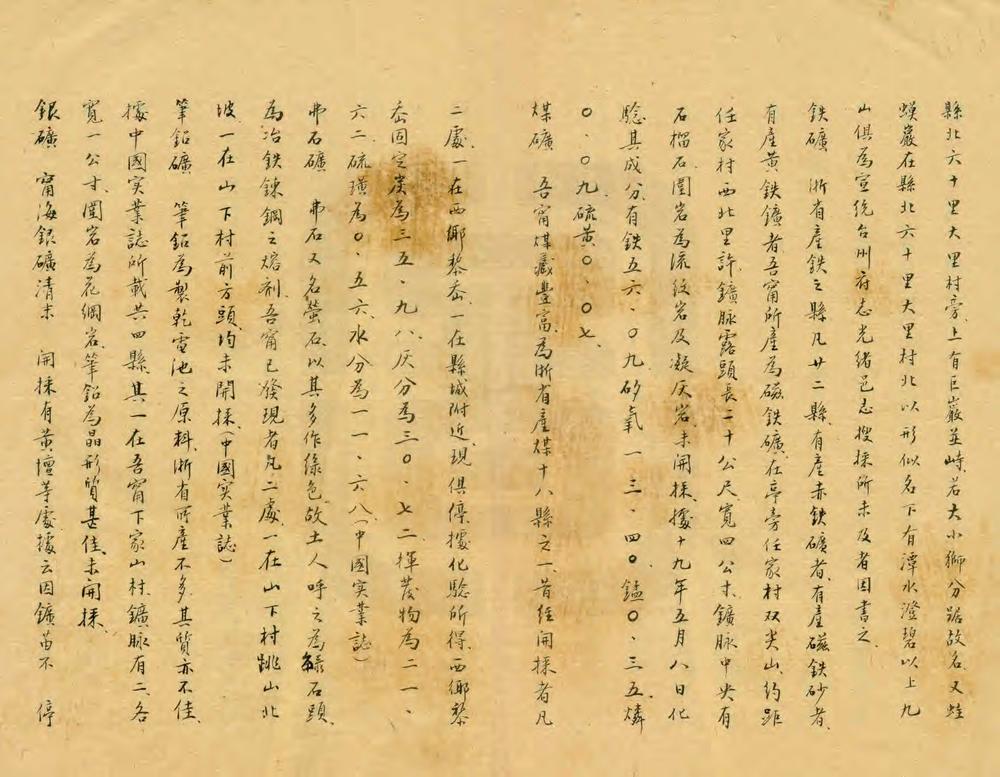 縣北六十里大里村旁上有巨巖並峙若大小獅分踞故名又蛙
蟆巖在縣北六十里大里村北以形似名下有潭水澄碧以上九
山俱為宣統台州府志光緒邑志搜採所未及者因書之
鉄礦　浙省產鉄之縣凡廿二縣有產赤鉄礦者、有產磁鉄砂者、
有產黃鉄鑛者吾甯所產為磁鉄礦、在亭旁任家村双尖山、約距
任家村西北里許、鑛脉露頭長二十公尺寬四公寸、鑛脉中央有
石榴石、圍岩為流紋岩及凝灰岩、未開採、據十九年五月八日化
騐其成分、有鉄五六·〇九、矽氧一三·四〇、錳〇·三五、燐
〇·〇九、硫黃〇·〇七、
煤礦　吾甯煤藏豐富、為浙省產煤十八縣之一、昔經開採者凡
二處、一在西鄉黎岙、一在縣城附近、現俱停、據化騐所得、西鄉黎
岙固定炭為三五·九八、灰分為三〇·七二、揮發物為二一·
六二、硫璜為〇·五六、水分為一一·六八、(中國实業誌)
弗石礦　弗石又名螢石、以其多作綠色、故土人呼之為綠石頭、
為冶鉄鍊鋼之熔剂、吾甯已發現者凡二處、一在山下村跳山北
坡、一在山下村前方頭、均未開採、(中國实業誌)
筆鉛礦　筆鉛為製乾電池之原料、浙省所產不多、其質亦不佳、
據中國实業誌所載共四縣、其一在吾甯下家山村、鑛脉有二、各
寬一公寸、圍岩為花綱岩、筆鉛為晶形、質甚佳、未開採、
銀礦　甯海銀礦清末　開採有黃壇等處、據云因鑛苗不　停